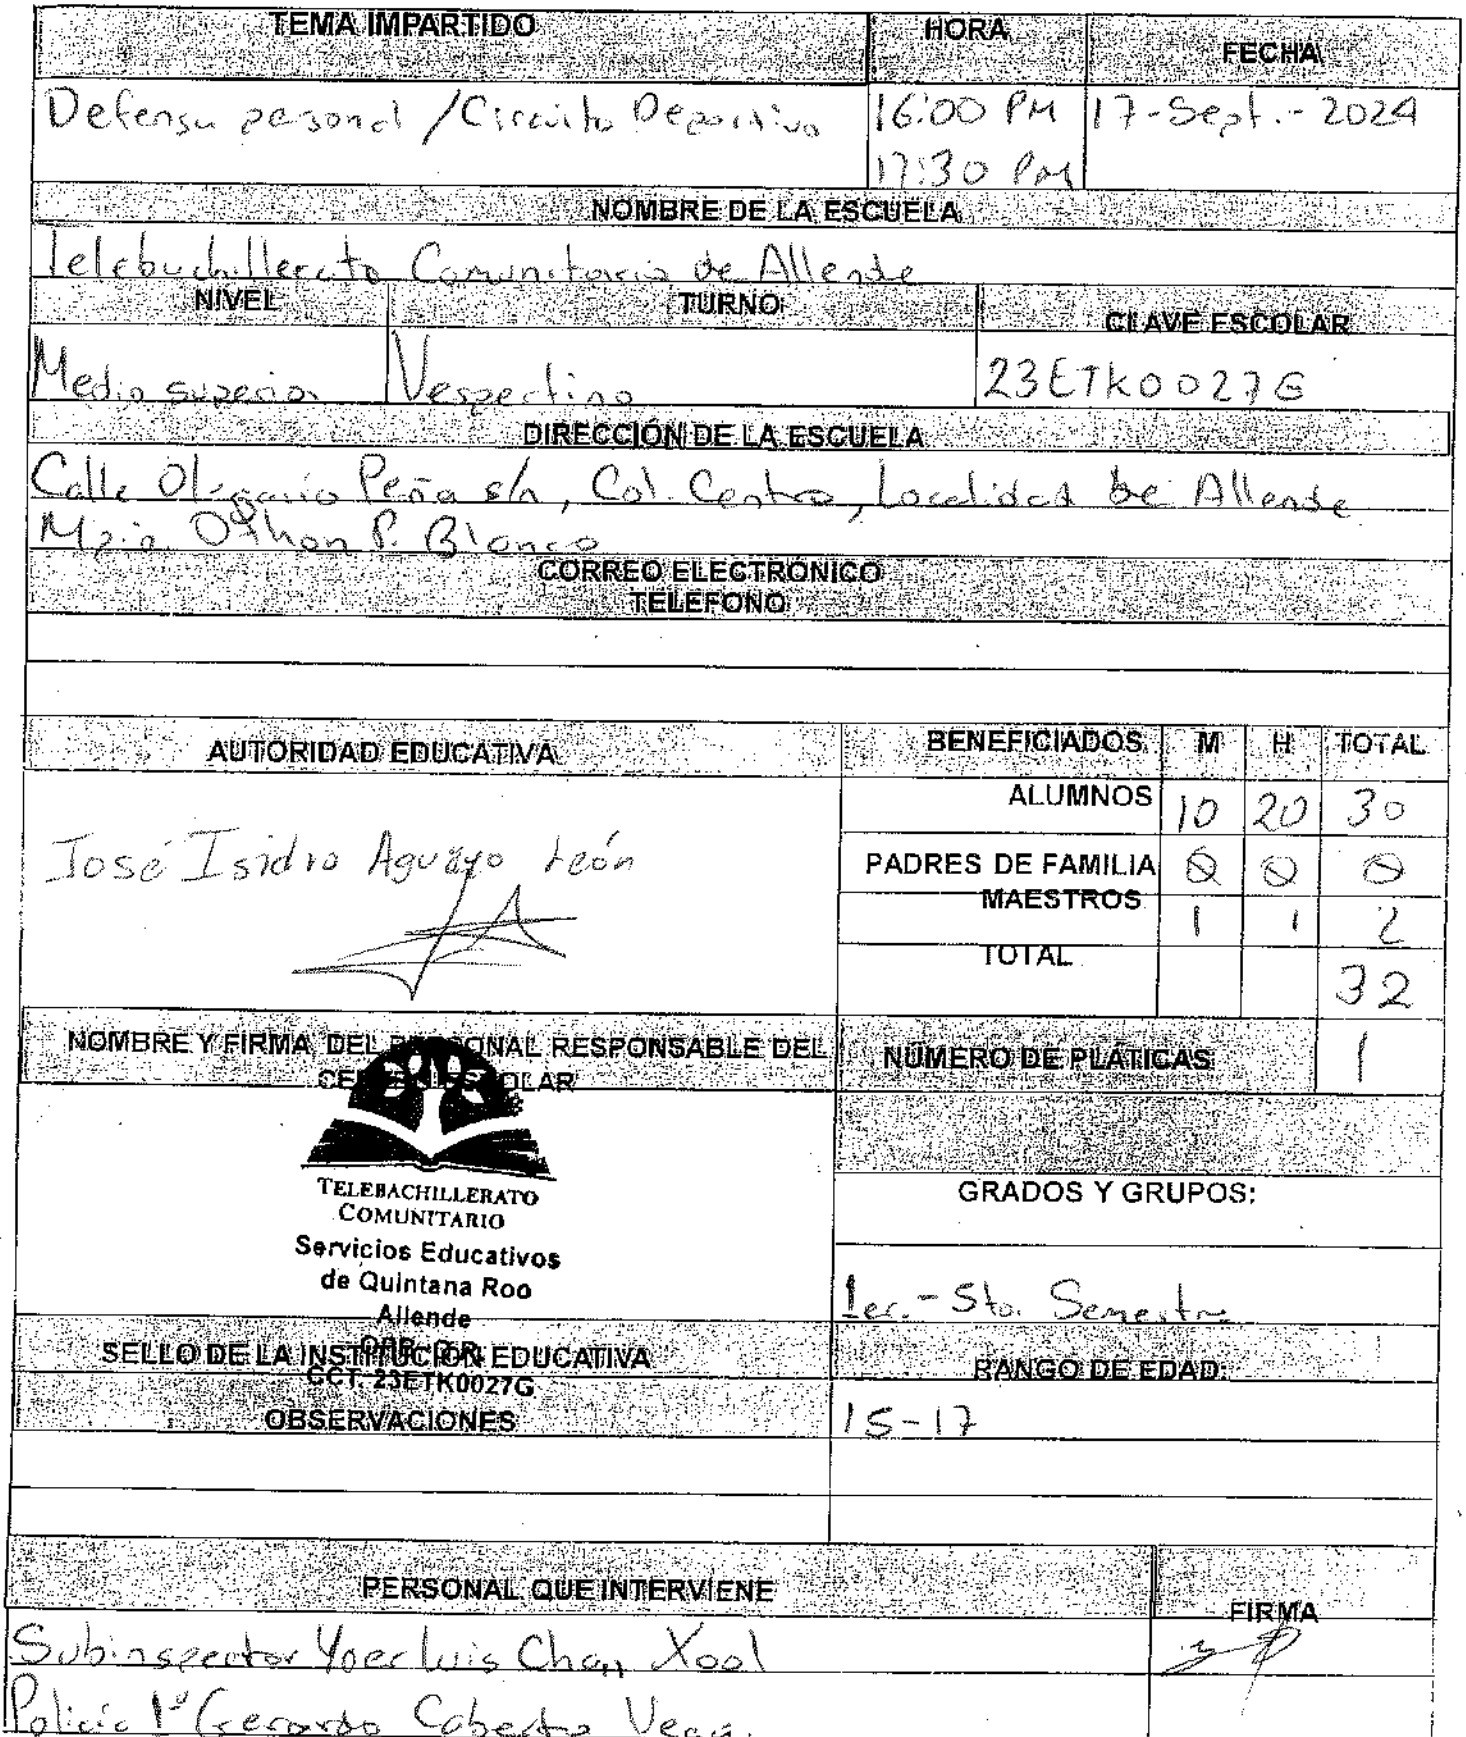 TEMA IMPARTIDO HORA FECHA
Defensa personal /Circuito Deportivo 16:00 PM 17-Sept.-2024
17:30 PM
NOMBRE DE LA ESCUELA
Telebachillerato Comunitario de Allende
NIVEL TURNO CLAVE ESCOLAR
Medio superior Vespertino 23ETK0027G
DIRECCIÓN DE LA ESCUELA
Calle Olegario Peña s/n, Col. Centro, Localidad de Allende
Mpio. Othon P. Blanco
CORREO ELECTRÓNICO
TELEFONO
AUTORIDAD EDUCATIVA BENEFICIADOS M H TOTAL
ALUMNOS 10 20 30
José Isidro Aguayo León
PADRES DE FAMILIA 0 0 0
MAESTROS 1 1 2
TOTAL 32
NOMBRE Y FIRMA DEL PERSONAL RESPONSABLE DEL
NÚMERO DE PLÁTICAS 1
ESCOLAR
TELEBACHILLERATO
COMUNITARIO
Servicios Educativos
de Quintana Roo
Allende
GRADOS Y GRUPOS:
1er.-5to. Semestre
SELLO DE LA INSTITUCIÓN EDUCATIVA
CCT. 23ETK0027G
RANGO DE EDAD:
15-17
OBSERVACIONES
PERSONAL QUE INTERVIENE FIRMA
Subinspector Yoer Luis Chan Xool
Policía 1º Gerardo Vega.